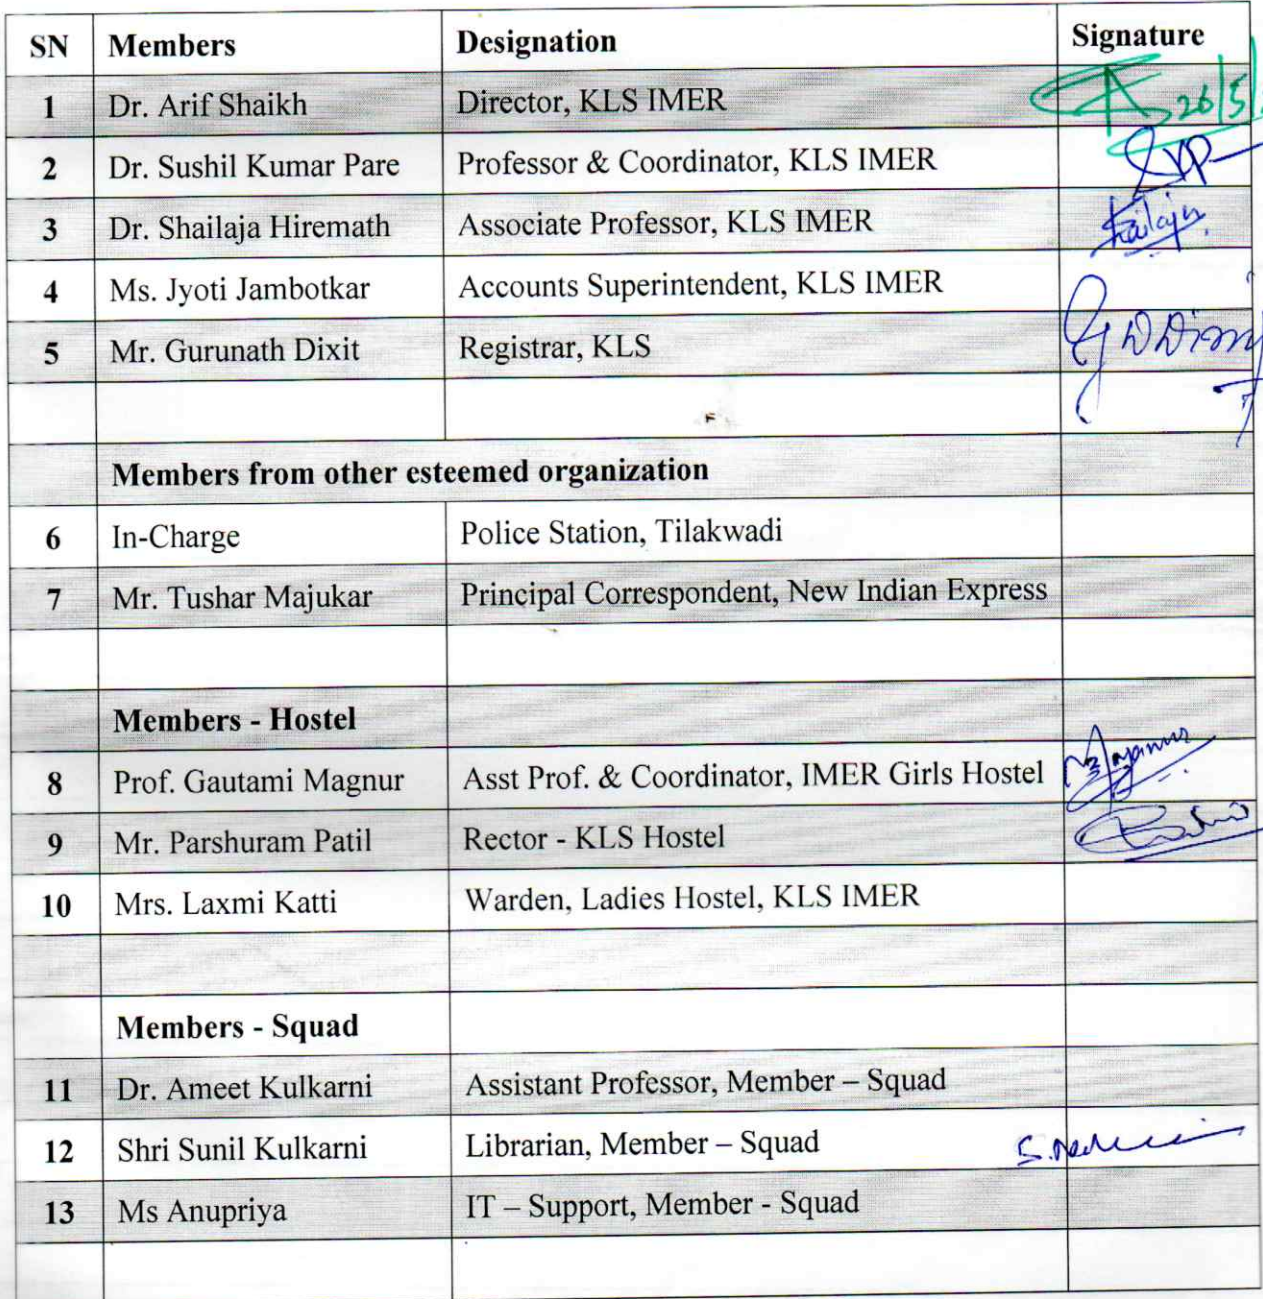 SN Members Designation Signature
1 Dr. Arif Shaikh Director, KLS IMER 26/5/
2 Dr. Sushil Kumar Pare Professor & Coordinator, KLS IMER
3 Dr. Shailaja Hiremath Associate Professor, KLS IMER
4 Ms. Jyoti Jambotkar Accounts Superintendent, KLS IMER
5 Mr. Gurunath Dixit Registrar, KLS
Members from other esteemed organization
6 In-Charge Police Station, Tilakwadi
7 Mr. Tushar Majukar Principal Correspondent, New Indian Express
Members - Hostel
8 Prof. Gautami Magnur Asst Prof. & Coordinator, IMER Girls Hostel
9 Mr. Parshuram Patil Rector - KLS Hostel
10 Mrs. Laxmi Katti Warden, Ladies Hostel, KLS IMER
Members - Squad
11 Dr. Ameet Kulkarni Assistant Professor, Member – Squad
12 Shri Sunil Kulkarni Librarian, Member – Squad
13 Ms Anupriya IT – Support, Member - Squad